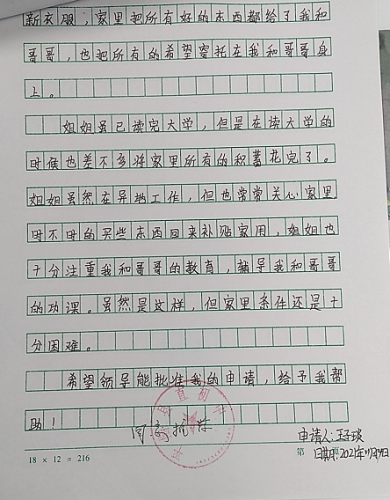 新衣服，家里把所有好的东西都给了我和
哥哥，也把所有的希望寄托在我和哥哥身
上。
姐姐虽已读完大学，但是在读大学的
时候也差不多将家里所有的积蓄花完了。
姐姐虽然在异地工作，但也常常关心家里
时不时的买些东西回来补贴家用，姐姐也
十分注重我和哥哥的教育，辅导我和哥哥
的功课。虽然是这样，但家里条件还是十
分困难。
希望领导能批准我的申请，给予我帮
助！
同意推荐
申请人：
18 × 12 = 216
第
日期：2021年11月9日